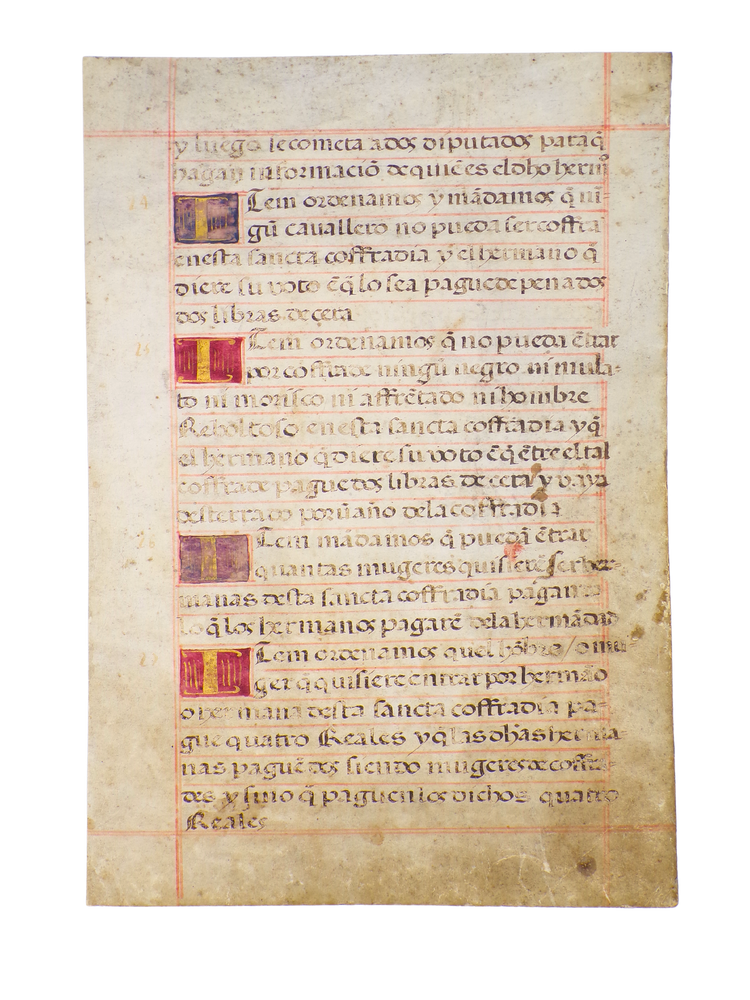 y luego se cometa a dos diputados para q̃
hagan informaciõ de quiẽ es el dho herm̃
24 Item ordenamos y mãdamos q̃ ni-
gũ cauallero no pueda ser coffra
en esta sancta coffradia y el hermano q̃
diere su voto ẽ q̃ lo sea pague de pena dos
dos libras de cera
25 Item ordenamos q̃ no pueda ẽtrar
por coffrade ningũ negro ni mula-
to ni morisco ni affrẽtado ni hombre
Reboltoso en esta sancta coffradia y q̃
el hermano q̃ diere su voto ẽ q̃ ẽtre el tal
coffrade pague dos libras de cera y vaya
desterrado por ũ año de la coffradia
26 Item mãdamos q̃ puedã ẽtrar
quantas mugeres quisierẽ ser her-
manas desta sancta coffradia pagando
lo q̃ los hermanos pagarẽ de la hermãdad
27 Item ordenamos quel hõbre / o mu-
ger q̃ quisiere entrar por hermão
o hermana desta sancta coffradia pa-
gue quatro Reales y q̃ las dhas herma-
nas paguẽ dos siendo mugeres de coffra-
des y sino q̃ paguen los dichos quatro
Reales